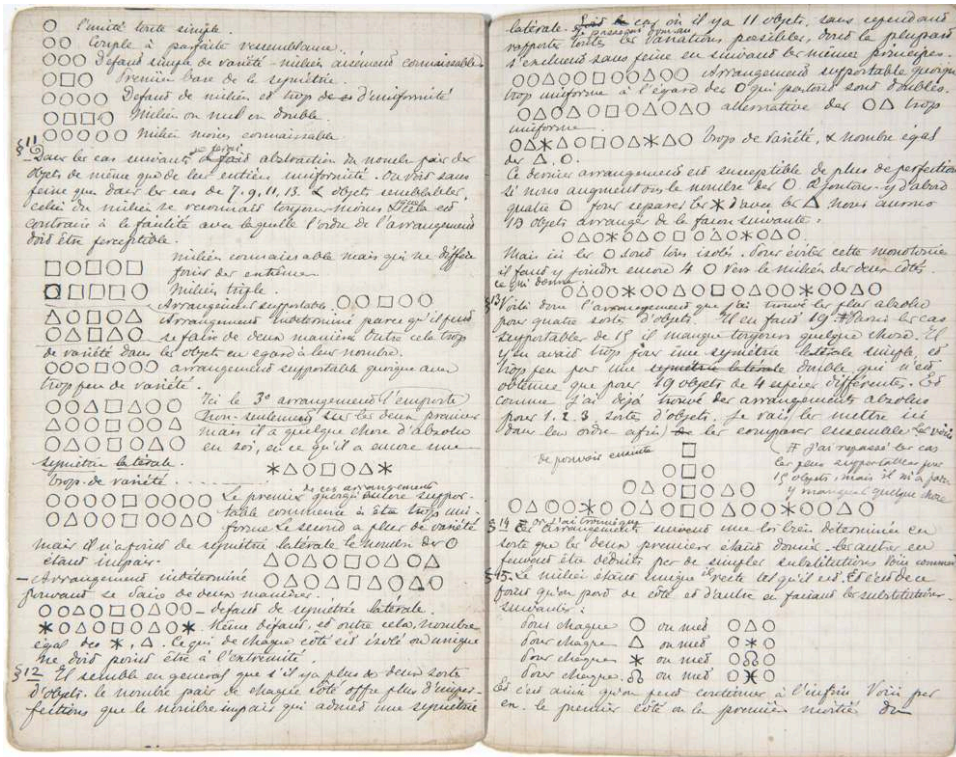 ○ l'unité toute simple.
○○ Couple à parfaite ressemblance.
○○○ Défaut simple de variété - milieu aisément connaissable
○□○ Première base de la symétrie.
○○○○ Défaut de milieu et trop d'uniformité
○□□○ Milieu ou nul ou double.
○○○○○ Milieu moins connaissable
§11
Dans les cas suivants je ferai abstraction du nombre pair des
objets de même que de leur entière uniformité. On voit sans
peine que dans les cas de 7. 9. 11. 13. & objets semblables,
celui du milieu se reconnaît toujours moins. Cela est
contraire à la facilité avec laquelle l'ordre de l'arrangement
doit être perceptible.
□○□○□ milieu connaissable mais qui ne diffère
point des extrêmes
○□□□○ Milieu triple.
Arrangement supportable ○○□○○
△○□○△ Arrangement indéterminé parce qu'il peut
○△□△○ se faire de deux manières. Outre cela trop
de variété dans les objets eu égard à leur nombre.
○○○□○○○ arrangement supportable quoique avec
trop peu de variété.
○○△□△○○ Ici le 3e arrangement l'emporte
△○○□○○△ non seulement sur les deux premiers
○△○□○△○ mais il a quelque chose d'absolu
en soi, en ce qu'il a encore une
symétrie latérale.
✶△○□○△✶
trop de variété
de ces arrangements
○○○○□○○○○ Le premier quoique encore suppor-
○△○○□○○△○ table commence à être trop uni-
forme Le second a plus de variété
mais il n'a point de symétrie latérale le nombre des ○
étant impair.
△○△○□○△○△
- Arrangement indéterminé ○△○△□△○△○
pouvant se faire de deux manières.
○○△○□○△○○ - défaut de symétrie latérale.
✶○△○□○△○✶ Même défaut, et outre cela, nombre
égal des ✶, △. Ce qui de chaque côté est isolé ou unique
ne doit point être à l'extrémité.
§12 Il semble en général que s'il y a plus de deux sortes
d'objets. le nombre pair de chaque côté offre plus d'imper-
fections que le nombre impair qui admet une symétrie
latérale. cas où il y a 11 objets, sans cependant
rapporter toutes les variations possibles, dont la plupart
s'excluent sans peine en suivant les mêmes principes.
○○△○○□○○△○○ Arrangement supportable quoique
trop uniforme à l'égard des ○ qui partout sont doublés.
○△○△○□○△○△○ alternative des ○△ trop
uniforme.
○✶○△○□○△○✶○ trop de variété, & nombre égal
des △. ○.
Ce dernier arrangement est susceptible de plus de perfection
si nous augmentons le nombre des ○. Ajoutons-y d'abord
quatre ○ pour séparer les ✶ d'avec les △ nous aurons
15 objets arranger de la façon suivante:
○△○✶○△○□○△○✶○△○
Mais ici les ○ sont tous isolés. Pour éviter cette monotonie
il faut y joindre encore 4 ○ vers le milieu des deux côtés.
ce qui donne.
○△○○✶○○△○□○△○○✶○○△○
§13 Voilà donc l'arrangement que j'ai trouvé le plus absolu
pour quatre sortes d'objets. Il en faut 19. # Parmi les cas
supportables de 15 il manque toujours quelque chose. Il
y en avait trop pour une symétrie latérale simple, et
trop peu pour une double, qui n'est
obtenue que pour 19 objets de 4 espèces différentes. Et
comme j'ai déjà trouvé des arrangements absolus
pour 1. 2. 3 sortes d'objets, je vais les mettre ici
dans leur ordre afin de pouvoir ensuite les comparer ensemble
□
○□○
○△○□○△○
○△○○✶○○△○□○△○○✶○○△○
# J'ai repassé les cas
les plus supportables pour
15 objets, mais il m'a paru
y manquer quelque chose
§14 or j'ai trouvé que
Ces arrangements suivent une loi bien déterminée en
sorte que les deux premiers étant donnés les autres en
peuvent être déduits par de simples substitutions Voici comment
§15. Le milieu étant unique reste tel qu'il est. Et c'est de ce
point qu'on part de côté et d'autre en faisant les substitutions
suivantes:
Pour chaque ○ on met ○△○
Pour chaque △ on met ○✶○
Pour chaque ✶ on met ○☊○
Pour chaque ☊ on met ○♓○
Et c'est ainsi qu'on peut continuer à l'infini Voici par
ex. le premier côté ou la première moitié du